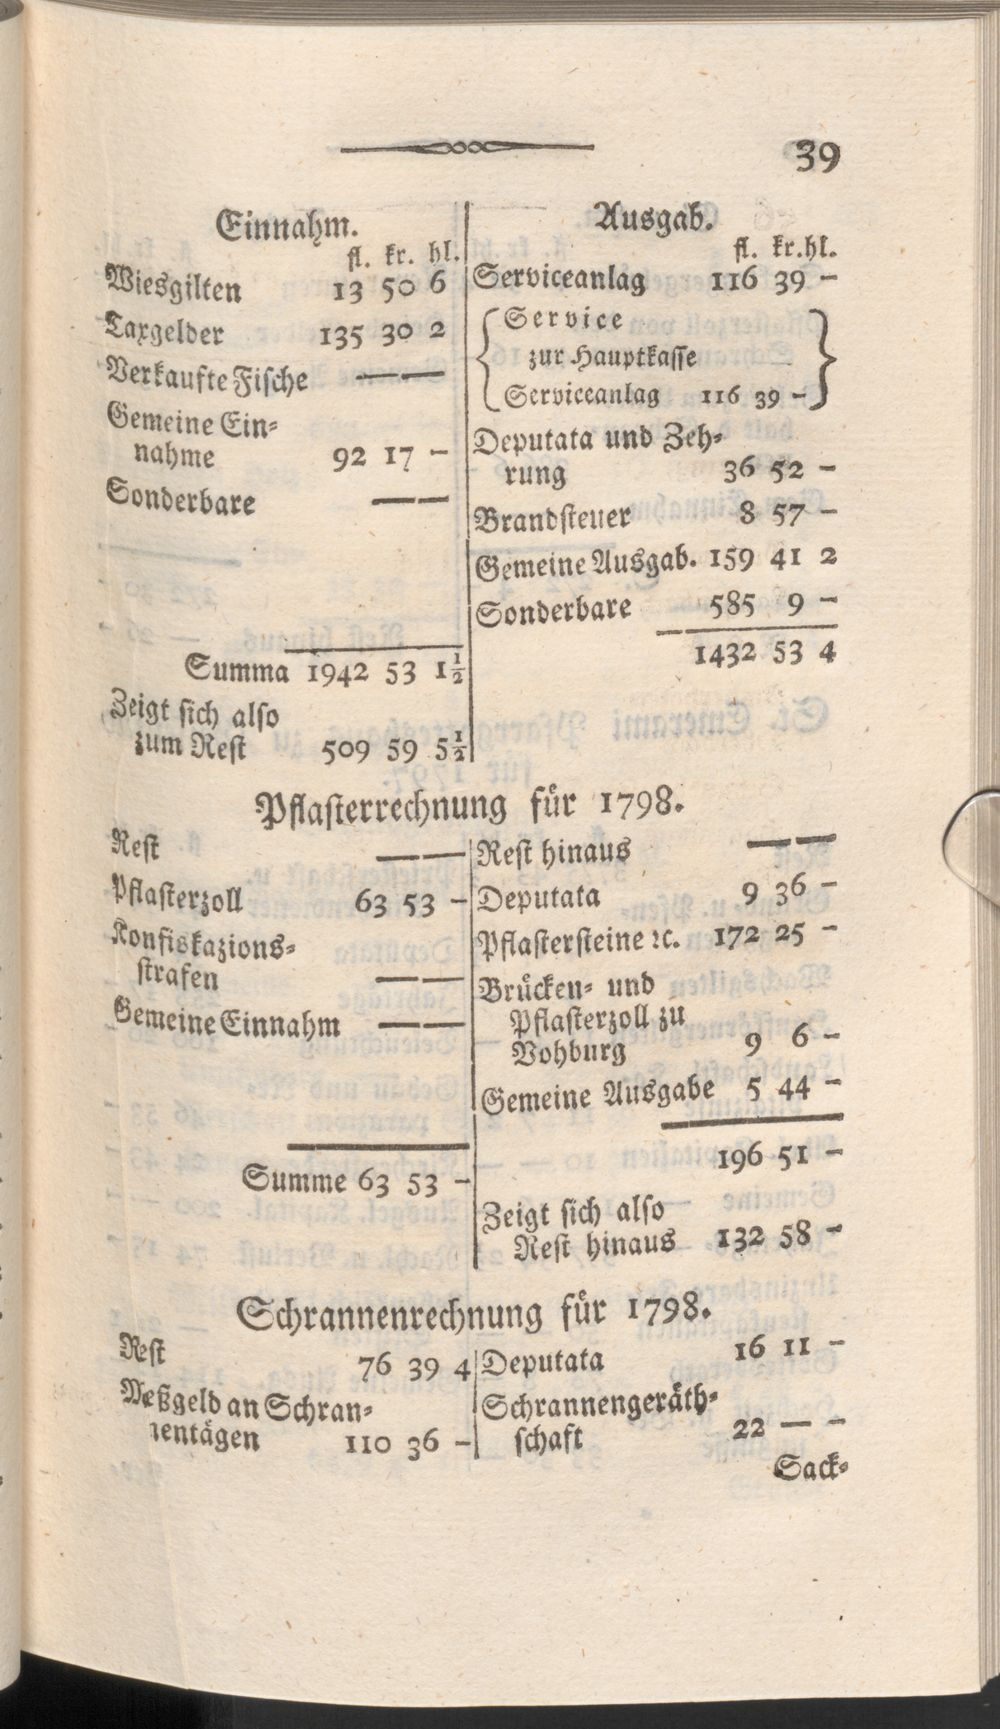 39
Einnahm.
fl. kr. hl.
Wiesgilten 13 50 6
Taxgelder 135 30 2
Verkaufte Fische — —
Gemeine Ein⸗
nahme 92 17 –
Sonderbare — —
Summa 1942 53 1½
Zeigt sich also
zum Rest 509 59 5½
Ausgab.
fl. kr. hl.
Serviceanlag 116 39 –
Service
zur Hauptkasse
Serviceanlag 116 39 –
Deputata und Zeh⸗
rung 36 52 –
Brandsteuer 8 57 –
Gemeine Ausgab. 159 41 2
Sonderbare 585 9 –
1432 53 4
Pflasterrechnung für 1798.
Rest — —
Pflasterzoll 63 53 –
Konfiskazions⸗
strafen — —
Gemeine Einnahm — —
Summe 63 53 –
Rest hinaus — —
Deputata 9 36 –
Pflastersteine ꝛc. 172 25 –
Brücken⸗ und
Pflasterzoll zu
Vohburg 9 6 –
Gemeine Ausgabe 5 44 –
196 51 –
Zeigt sich also
Rest hinaus 132 58 –
Schrannenrechnung für 1798.
Rest 76 39 4
Meßgeld an Schran⸗
nentägen 110 36 –
Deputata 16 11 –
Schrannengeräth⸗
schaft 22 — –
Sack⸗